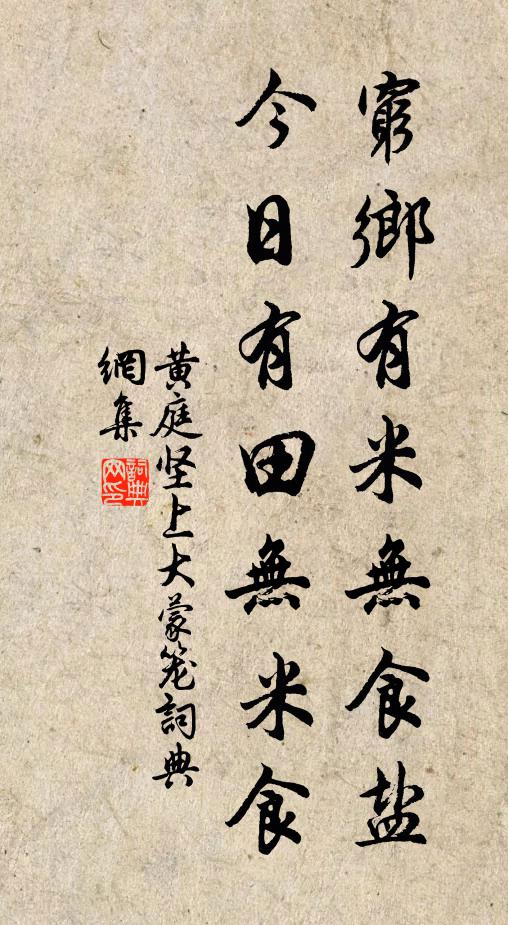 窮鄉有米無食盐
今日有田無米食
黄庭坚上大蒙笼詞典
網集
詞典
网印